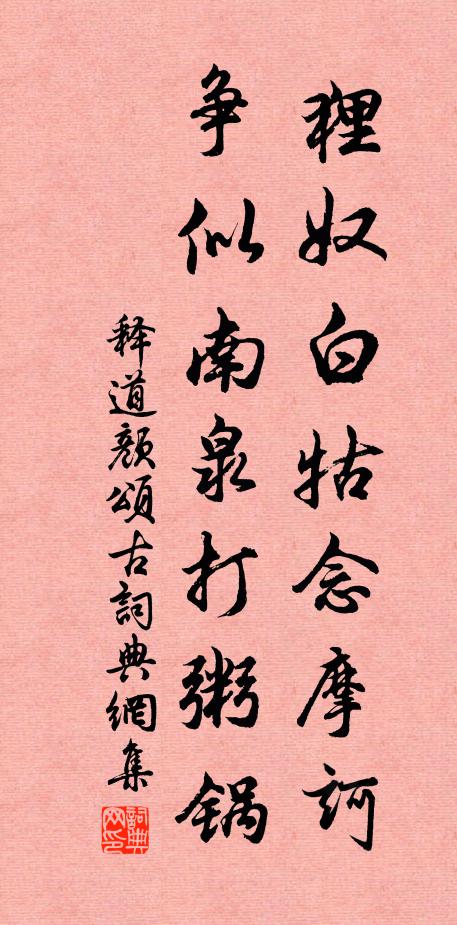 狸奴白牯念摩訶
争似南泉打粥锅
释道颜頌古詞典網集
詞典网印